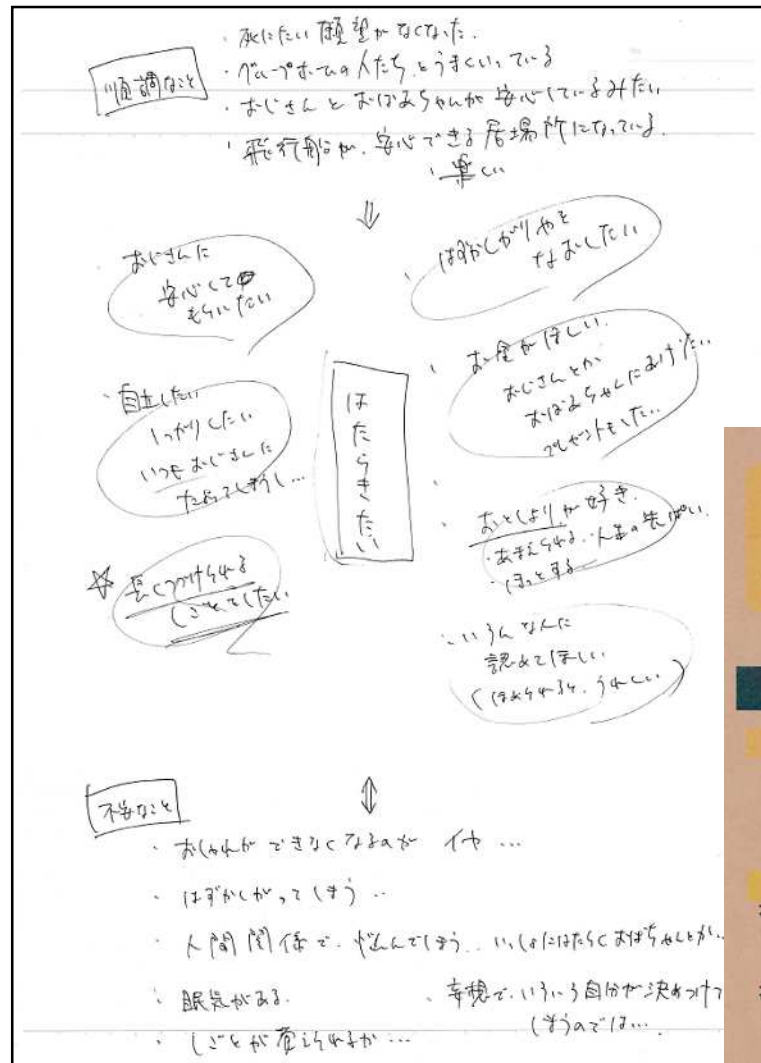 順調なこと
・死にたい願望がなくなった.
・グループホームの人たちとうまくいっている
・おじさんとおばあちゃんが安心しているみたい
・飛行船が、安心できる居場所になっている.
・楽しい
⇓
おじさんに
安心して
もらいたい
・はずかしがりやを
なおしたい
・自立したい
しっかりしたい
いつもおじさんに
たよってしまうし…
はたらきたい
・お金がほしい.
おじさんとか
おばあちゃんにあげたい..
プレゼントもしたい..
☆長くつづけられる
しごとをしたい
・おとしよりが好き.
・あまえられる..人生の先ぱい.
・ほっとする
・いろんな人に
認めてほしい
(ほめられると、うれしい)
⇕
不安なこと
・おしゃれができなくなるのが イヤ…
・はずかしがってしまう..
・人間関係で、悩んでしまう..いっしょにはたらくおばちゃんとか..
・眠気がある.
・妄想で、いろいろ自分が決めつけて
しまうのでは…
・しごとが覚えられるか…